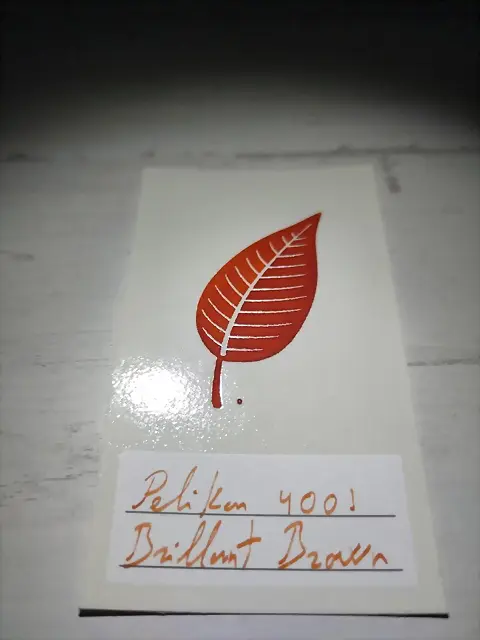 Pelikan 4001
Brillant Brown